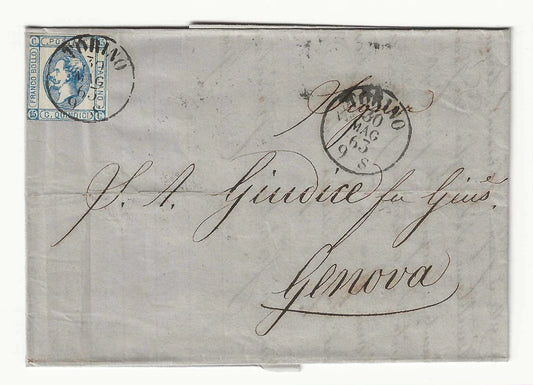 C. POSTE
FRANCO BOLLO
C. QUINDICI
TORINO
TORINO
30
MAG
63
9 S
Sigr
S. A. Giudice fu Gius.
Genova